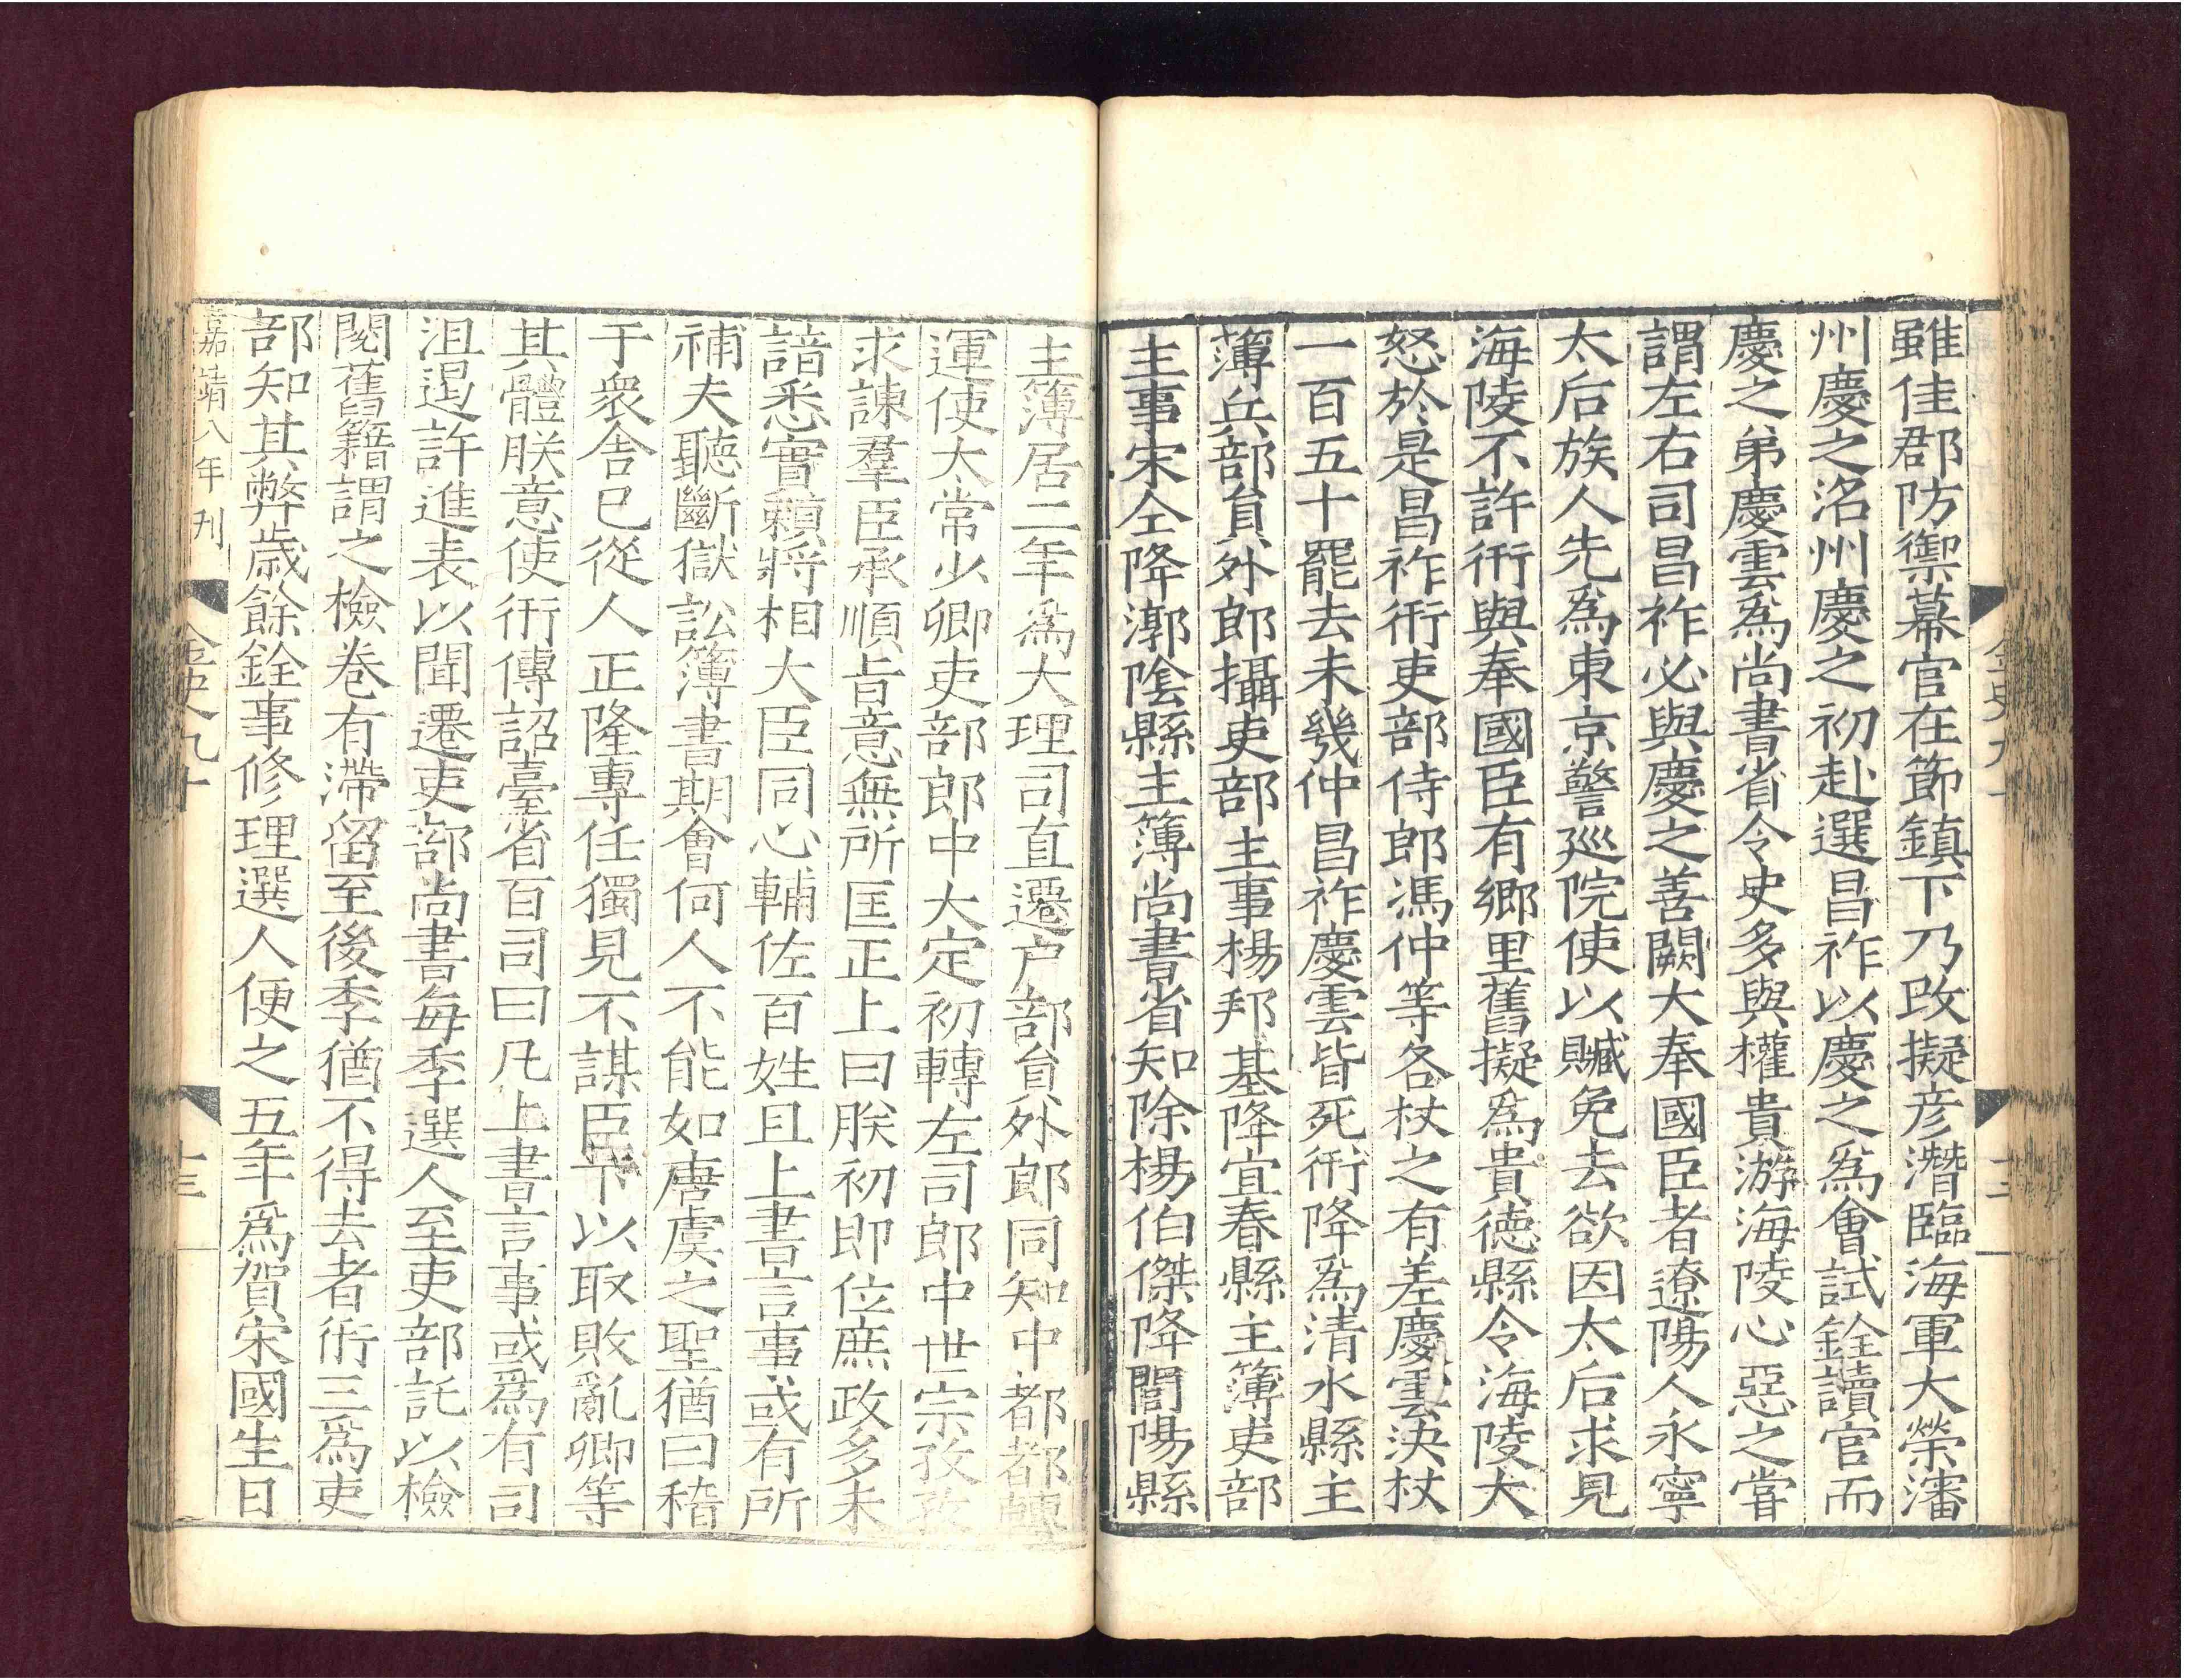 雖佳郡防禦幕官在節鎮下乃改擬彦潛臨海軍大榮瀋
州慶之洺州慶之初赴選昌祚以慶之為會試銓讀官而
慶之弟慶雲為尚書省令史多與權貴游海陵心惡之嘗
謂左右司昌祚必與慶之善闕大奉國臣者遼陽人永寧
太后族人先為東京警廵院使以贓免去欲因太后求見
海陵不許術與奉國臣有鄉里舊擬為貴德縣令海陵大
怒於是昌祚術吏部侍郎馮仲等各杖之有差慶雲決杖
一百五十罷去未幾仲昌祚慶雲皆死術降為清水縣主
薄兵部貟外郎攝吏部主事楊邦基降宜春縣主簿吏部
主事宋仝降漷隂縣主簿尚書省知除楊伯傑降誾陽縣
主簿居二年爲大理司直遷户部貟外郎同知中都都轉
運使太常少卿吏部郎中大定初轉左司郎中世宗孜孜
求諫羣臣承順旨意無所匡正上曰朕初即位庶政多未
諳悉實頼將相大臣同心輔佐百姓且上書言事或有所
補夫聽斷獄訟簿書期會何人不能如唐虞之聖猶曰稽
于衆舍已從人正隆專任獨見不謀臣下以取敗亂卿等
其體朕意使術傳詔臺省百司曰凡上書言事或爲有司
沮遏許進表以聞遷吏部尚書每季選人至吏部託以檢
閲舊籍謂之檢巻有滯留至後季猶不得去者術三爲吏
部知其弊歳餘銓事修理選人便之五年爲賀宋國生日
嘉靖八年刋
金史九十
十三